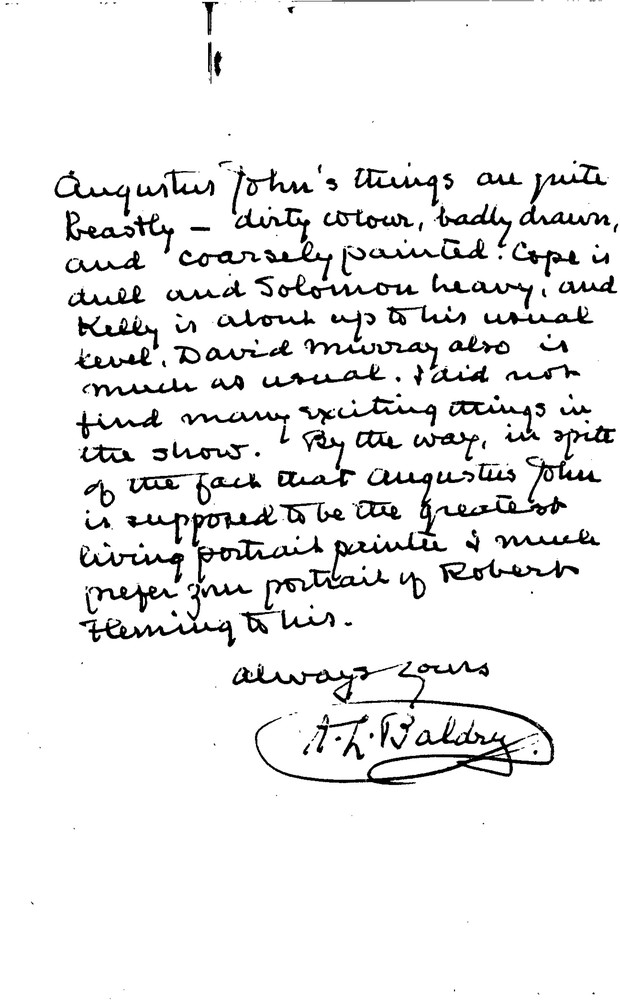 Augustus John's things are quite
beastly – dirty colour, badly drawn,
and coarsely painted. Cope is
dull and Solomon heavy, and
Kelly is about up to his usual
level. David Murray also is
much as usual. I did not
find many exciting things in
the show. By the way, in spite
of the fact that Augustus John
is supposed to be the greatest
living portrait painter I much
prefer your portrait of Robert
Fleming to his.
always yours
A. L. Baldry.